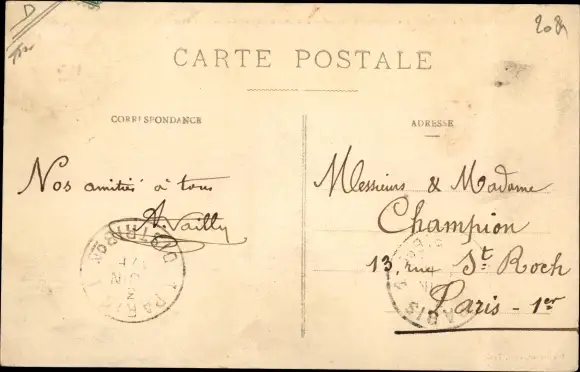 D
CARTE POSTALE
CORRESPONDANCE
ADRESSE
Nos amitiés à tous
A. Vailly
Messieurs & Madame
Champion
13, rue St. Roch
Paris - 1er
PARIS
DISTRIBUTION
PARIS